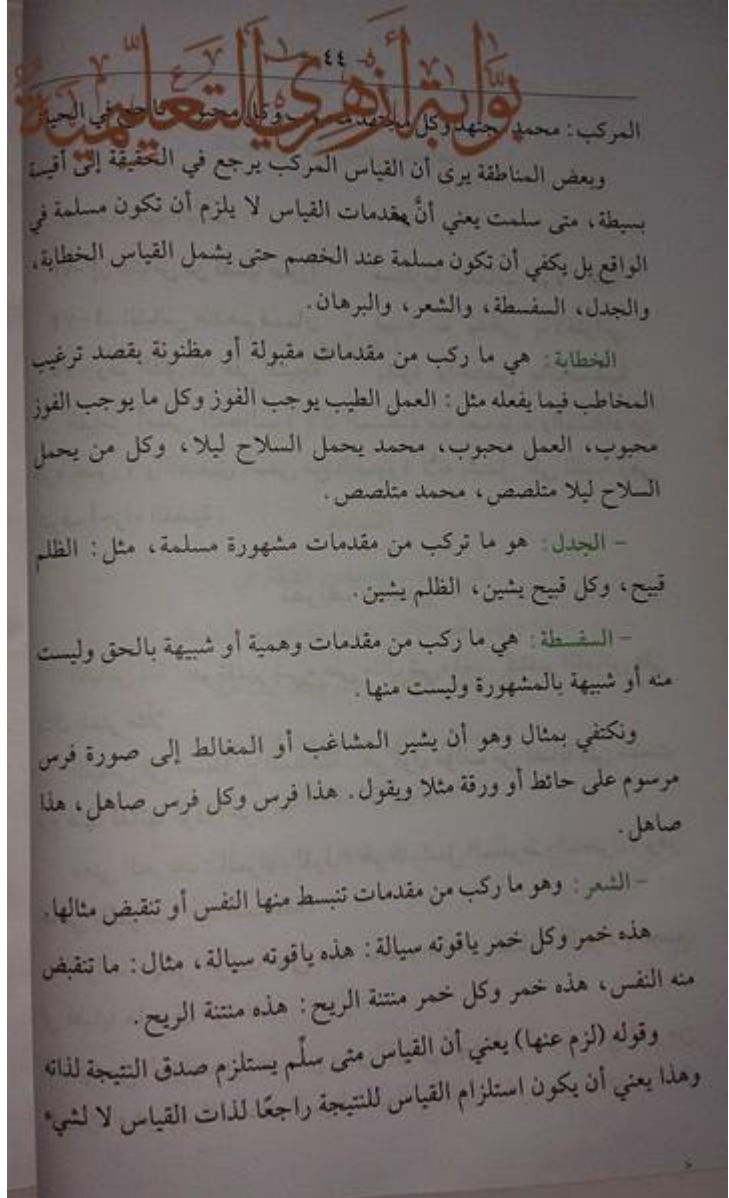 بوابة أزهري التعليمية
- ٤٤ -
المركب: محمد مجتهد وكل مجتهد وكل ناجح في الحياة
وبعض المناطقة يرى أن القياس المركب يرجع في الحقيقة إلى أقيسة
بسيطة، متى سلمت يعني أنَّ مقدمات القياس لا يلزم أن تكون مسلمة في
الواقع بل يكفي أن تكون مسلمة عند الخصم حتى يشمل القياس الخطابة،
والجدل، السفسطة، والشعر، والبرهان.
الخطابة: هي ما ركب من مقدمات مقبولة أو مظنونة بقصد ترغيب
المخاطب فيما يفعله مثل: العمل الطيب يوجب الفوز وكل ما يوجب الفوز
محبوب، العمل محبوب، محمد يحمل السلاح ليلا، وكل من يحمل
السلاح ليلا متلصص، محمد متلصص.
- الجدل: هو ما تركب من مقدمات مشهورة مسلمة، مثل: الظلم
قبيح، وكل قبيح يشين، الظلم يشين.
- السفسطة: هي ما ركب من مقدمات وهمية أو شبيهة بالحق وليست
منه أو شبيهة بالمشهورة وليست منها.
ونكتفي بمثال وهو أن يشير المشاغب أو المغالط إلى صورة فرس
مرسوم على حائط أو ورقة مثلا ويقول. هذا فرس وكل فرس صاهل، هذا
صاهل.
- الشعر: وهو ما ركب من مقدمات تنبسط منها النفس أو تنقبض مثالها.
هذه خمر وكل خمر ياقوته سيالة: هذه ياقوته سيالة، مثال: ما تنقبض
منه النفس، هذه خمر وكل خمر منتنة الريح: هذه منتنة الريح.
وقوله (لزم عنها) يعني أن القياس متى سلِّم يستلزم صدق النتيجة لذاته
وهذا يعني أن يكون استلزام القياس للنتيجة راجعًا لذات القياس لا لشيء